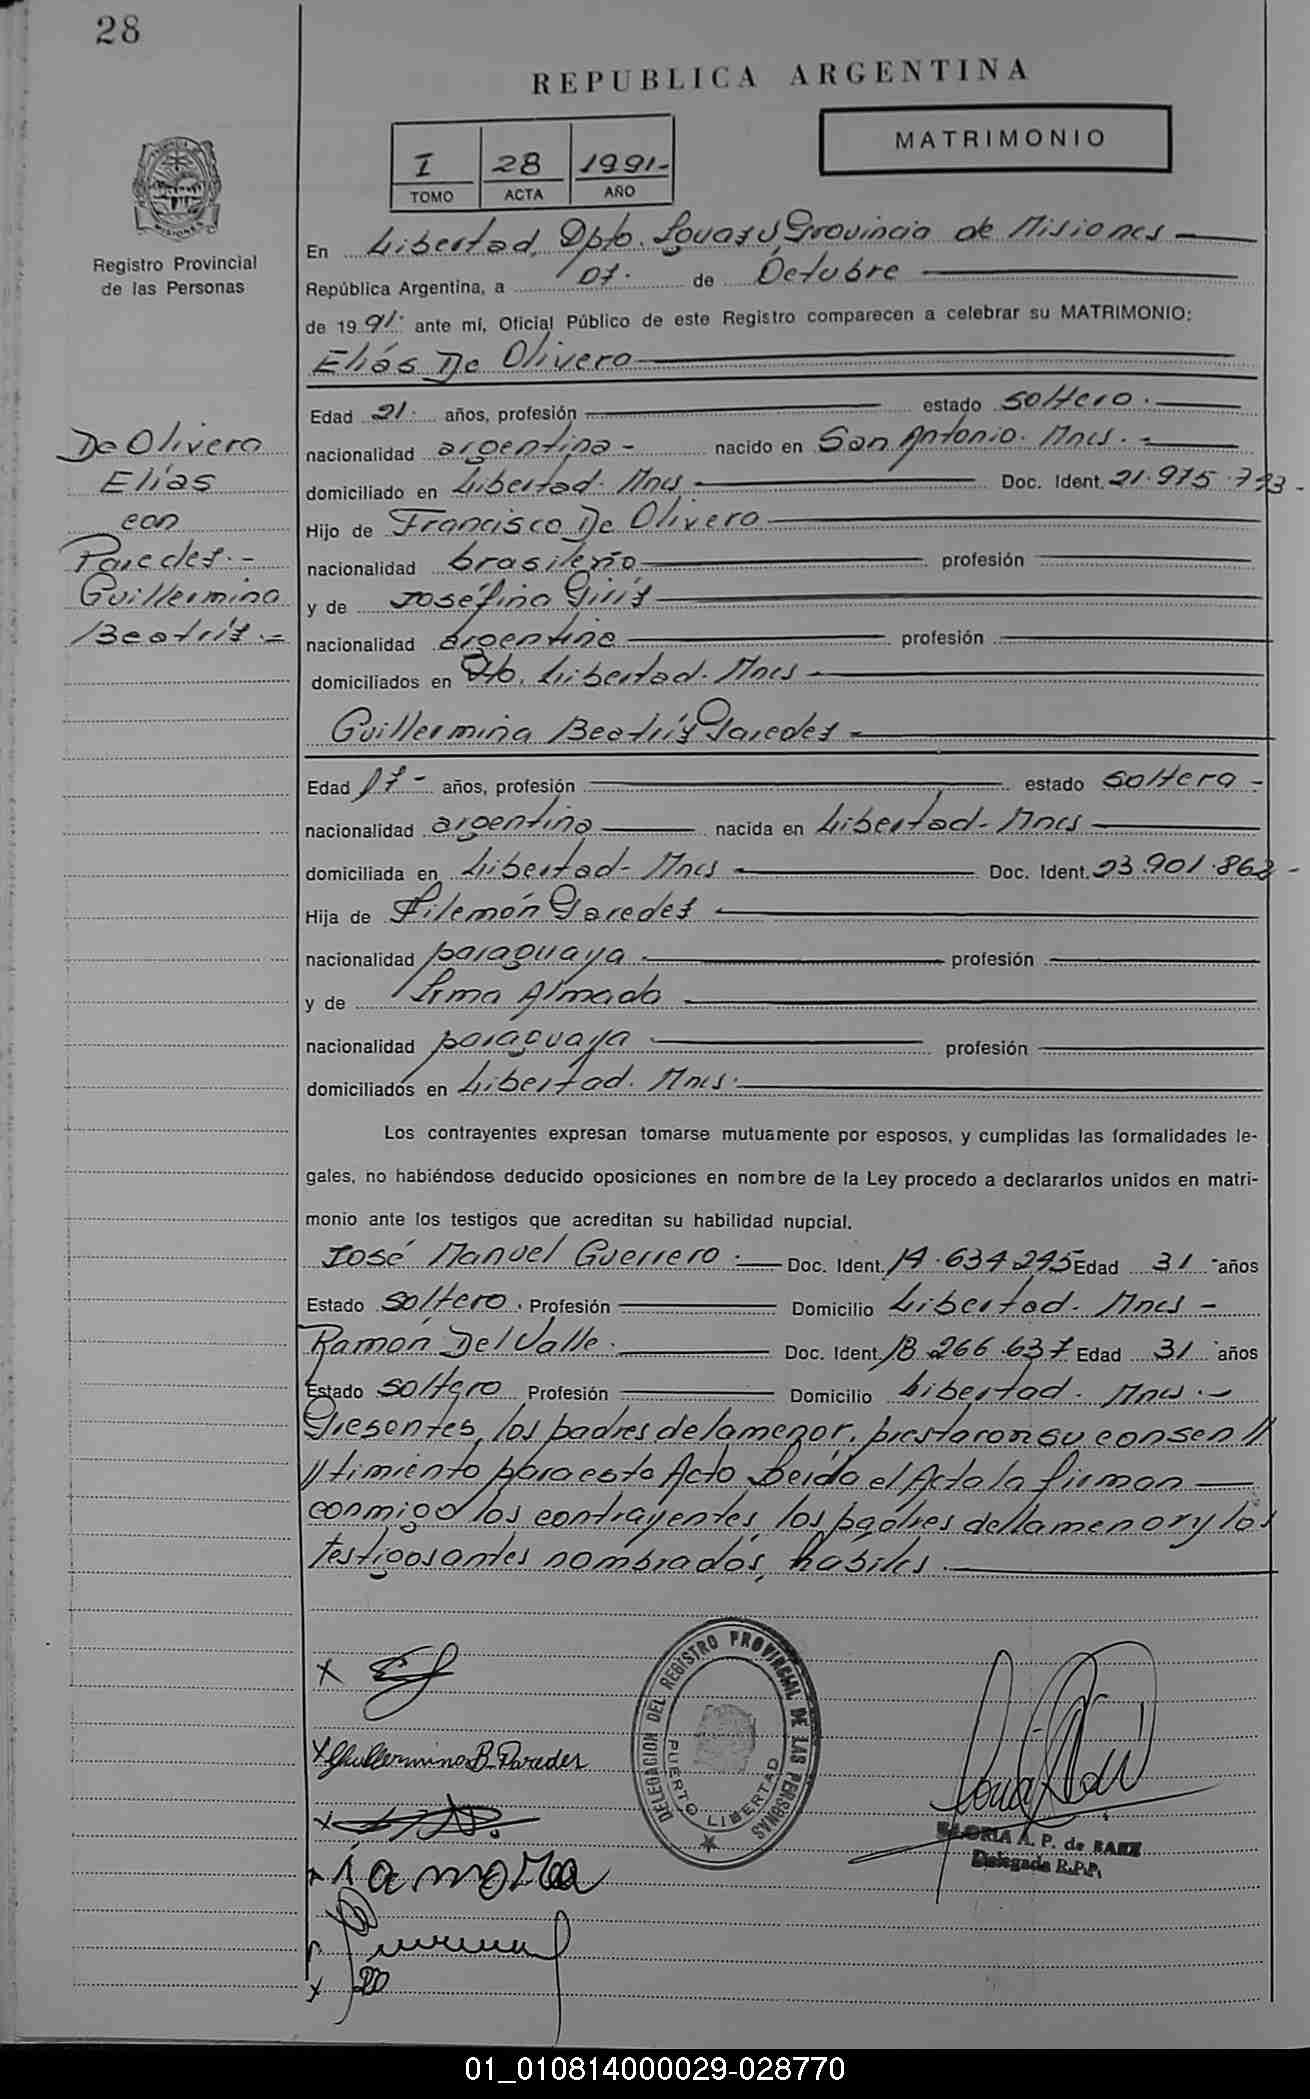 28
REPUBLICA ARGENTINA
MATRIMONIO
I 28 1991-
TOMO ACTA AÑO
Registro Provincial
de las Personas
De Olivera
Elías
con
Paredes.-
Guillermina
Beatríz.-
En Libertad, Dpto. Iguazú Provincia de Misiones
República Argentina, a 07. de Octubre
de 1991. ante mí, Oficial Público de este Registro comparecen a celebrar su MATRIMONIO:
Elías De Olivera
Edad 21. años, profesión estado soltero.
nacionalidad argentina- nacido en San Antonio. Mnes.-
domiciliado en Libertad. Mnes Doc. Ident. 21.975.793-
Hijo de Francisco De Olivera
nacionalidad brasileña profesión
y de Joséfina
nacionalidad argentina profesión
domiciliados en Pto. Libertad. Mnes
Guillermina Beatríz Paredes-
Edad 17- años, profesión estado soltera-
nacionalidad argentina nacida en Libertad- Mnes
domiciliada en Libertad- Mnes Doc. Ident. 23.901.862-
Hija de Filemón Paredes
nacionalidad paraguaya profesión
y de Irma Almada
nacionalidad paraguaya profesión
domiciliados en Libertad. Mnes.
Los contrayentes expresan tomarse mutuamente por esposos, y cumplidas las formalidades le-
gales, no habiéndose deducido oposiciones en nombre de la Ley procedo a declararlos unidos en matri-
monio ante los testigos que acreditan su habilidad nupcial.
José Manuel Guerrero. Doc. Ident. 14.634.245 Edad 31 años
Estado soltero. Profesión Domicilio Libertad. Mnes-
Ramón Del Valle. Doc. Ident. 18.266.637 Edad 31 años
Estado soltero Profesión Domicilio Libertad. Mnes.-
Presentes, los padres de la menor, prestaron su consen//
//timiento para este Acto Leída el Acta la firman
conmigo los contrayentes, los padres de la menor y los
testigos antes nombrados, hábiles.
X
X Guillermina B. Paredes
X
X
X
DELEGACION DEL REGISTRO PROVINCIAL DE LAS PERSONAS
PUERTO LIBERTAD
GLORIA A. P. de BAEZ
Delegada R.P.P.
01_010814000029-028770